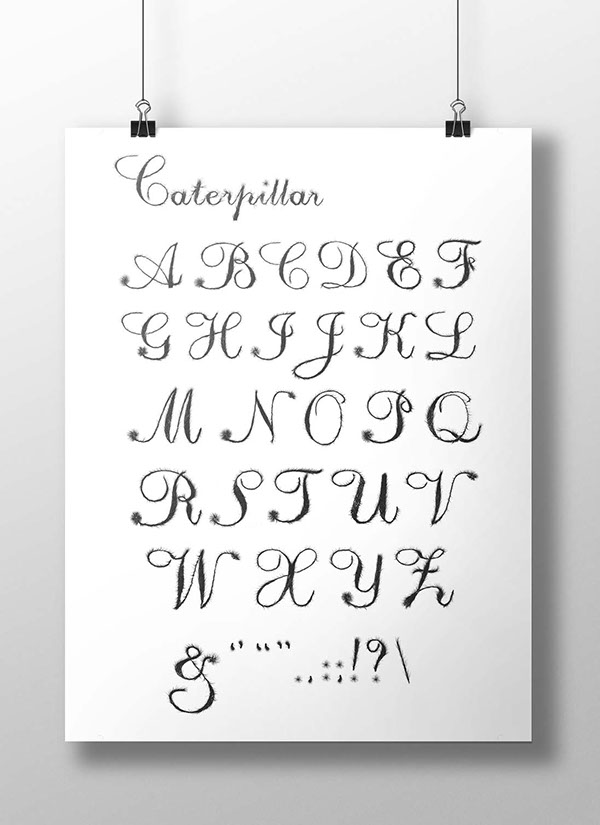 Caterpillar
A B C D E F
G H I J K L
M N O P Q
R S T U V
W X Y Z
& ‘ ’ “ ” . , : ; ! ? \